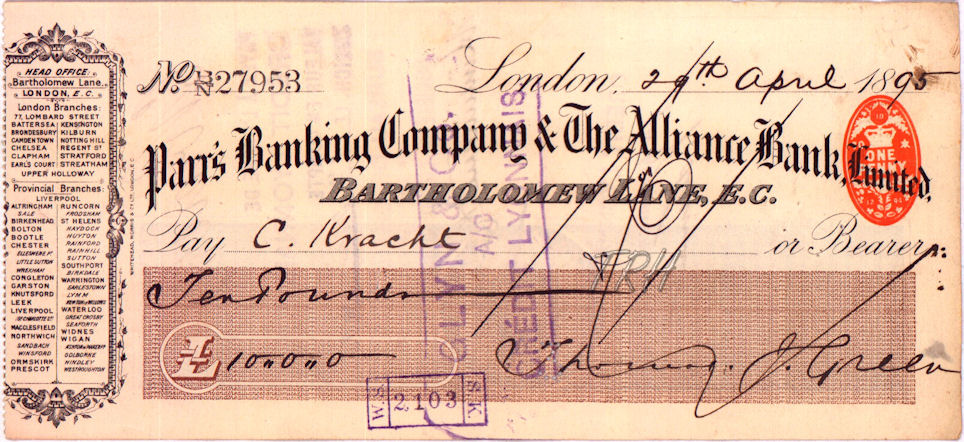 HEAD OFFICE:
Bartholomew Lane,
LONDON, E.C.
London Branches:
77, LOMBARD STREET
BATTERSEA KENSINGTON
BRONDESBURY KILBURN
CAMDEN TOWN NOTTING HILL
CHELSEA REGENT ST
CLAPHAM STRATFORD
EARLS COURT STREATHAM
UPPER HOLLOWAY
Provincial Branches:
LIVERPOOL
ALTRINCHAM RUNCORN
SALE FRODSHAM
BIRKENHEAD ST HELENS
BOLTON HAYDOCK
BOOTLE HUYTON
CHESTER RAINFORD
ELLESMERE PT RAINHILL
LITTLE SUTTON SUTTON
WREXHAM SOUTHPORT
CONGLETON BIRKDALE
GARSTON WARRINGTON
KNUTSFORD EARLESTOWN
LEEK LYMM
LIVERPOOL WATERLOO
GREAT CROSBY
MACCLESFIELD SEAFORTH
NORTHWICH WIDNES
SANDBACH WIGAN
WINSFORD GOLBORNE
ORMSKIRK HINDLEY
PRESCOT WESTHOUGHTON
No B/N 27953
London, 29th April 1895
Parr's Banking Company & The Alliance Bank, Limited,
BARTHOLOMEW LANE, E.C.
ONE PENNY
Pay C. Kracht or Bearer
FRH
Ten Pounds
£ 10.0.0
Thomas. J. Green
CREDIT LYONNAIS
W.S. 2103 S.K.